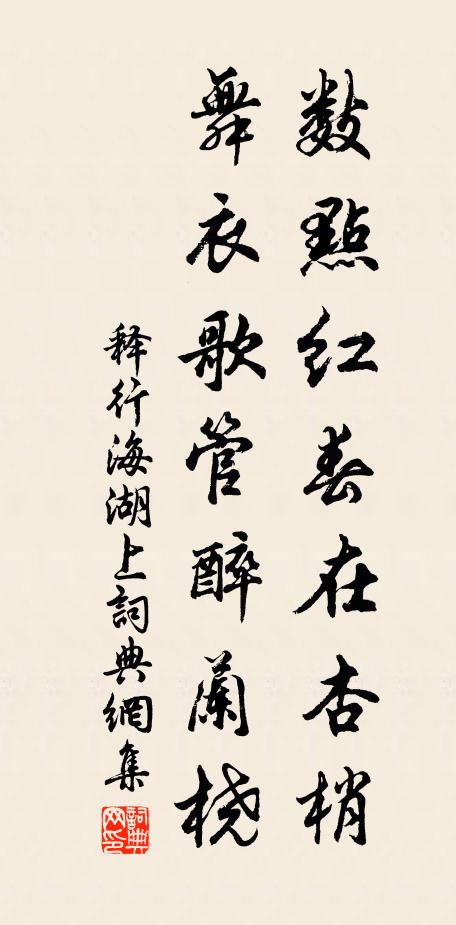 數點紅春在杏梢
舞衣歌管醉蘭橈
释行海湖上詞典網集
詞典網印